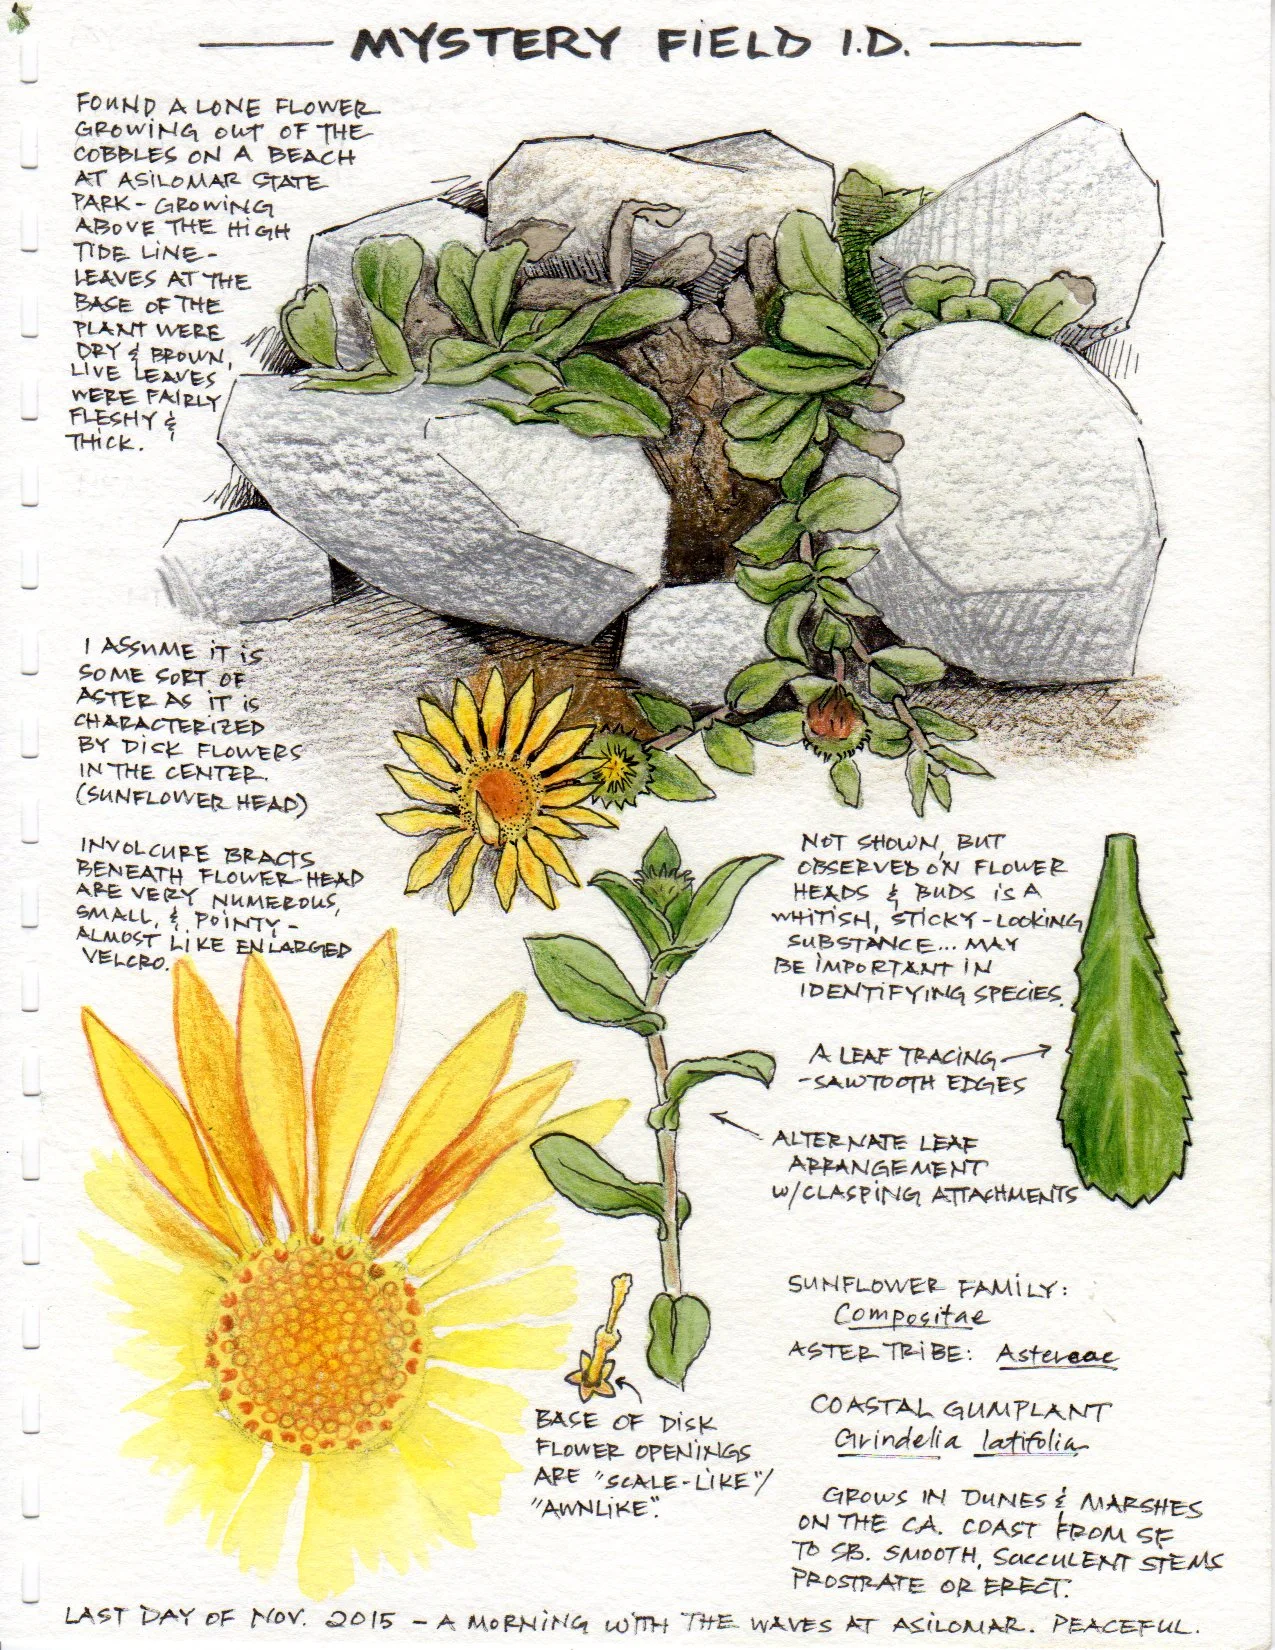 MYSTERY FIELD I.D.
FOUND A LONE FLOWER
GROWING OUT OF THE
COBBLES ON A BEACH
AT ASILOMAR STATE
PARK - GROWING
ABOVE THE HIGH
TIDE LINE -
LEAVES AT THE
BASE OF THE
PLANT WERE
DRY & BROWN,
LIVE LEAVES
WERE FAIRLY
FLESHY &
THICK.
I ASSUME IT IS
SOME SORT OF
ASTER AS IT IS
CHARACTERIZED
BY DISK FLOWERS
IN THE CENTER.
(SUNFLOWER HEAD)
INVOLCURE BRACTS
BENEATH FLOWER-HEAD
ARE VERY NUMEROUS,
SMALL, & POINTY -
ALMOST LIKE ENLARGED
VELCRO.
NOT SHOWN, BUT
OBSERVED ON FLOWER
HEADS & BUDS IS A
WHITISH, STICKY-LOOKING
SUBSTANCE... MAY
BE IMPORTANT IN
IDENTIFYING SPECIES.
A LEAF TRACING
- SAWTOOTH EDGES
ALTERNATE LEAF
ARRANGEMENT
W/CLASPING ATTACHMENTS
SUNFLOWER FAMILY:
Compositae
ASTER TRIBE: Astereae
COASTAL GUMPLANT
Grindelia latifolia
GROWS IN DUNES & MARSHES
ON THE CA. COAST FROM SF
TO SB. SMOOTH, SUCCULENT STEMS
PROSTRATE OR ERECT.
BASE OF DISK
FLOWER OPENINGS
ARE "SCALE-LIKE"/
"AWNLIKE".
LAST DAY OF NOV. 2015 - A MORNING WITH THE WAVES AT ASILOMAR. PEACEFUL.